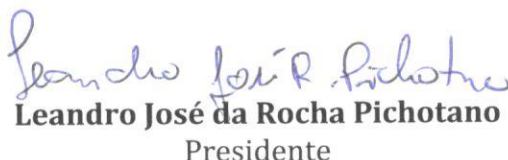 Leandro José R. Pichotano
Leandro José da Rocha Pichotano
Presidente